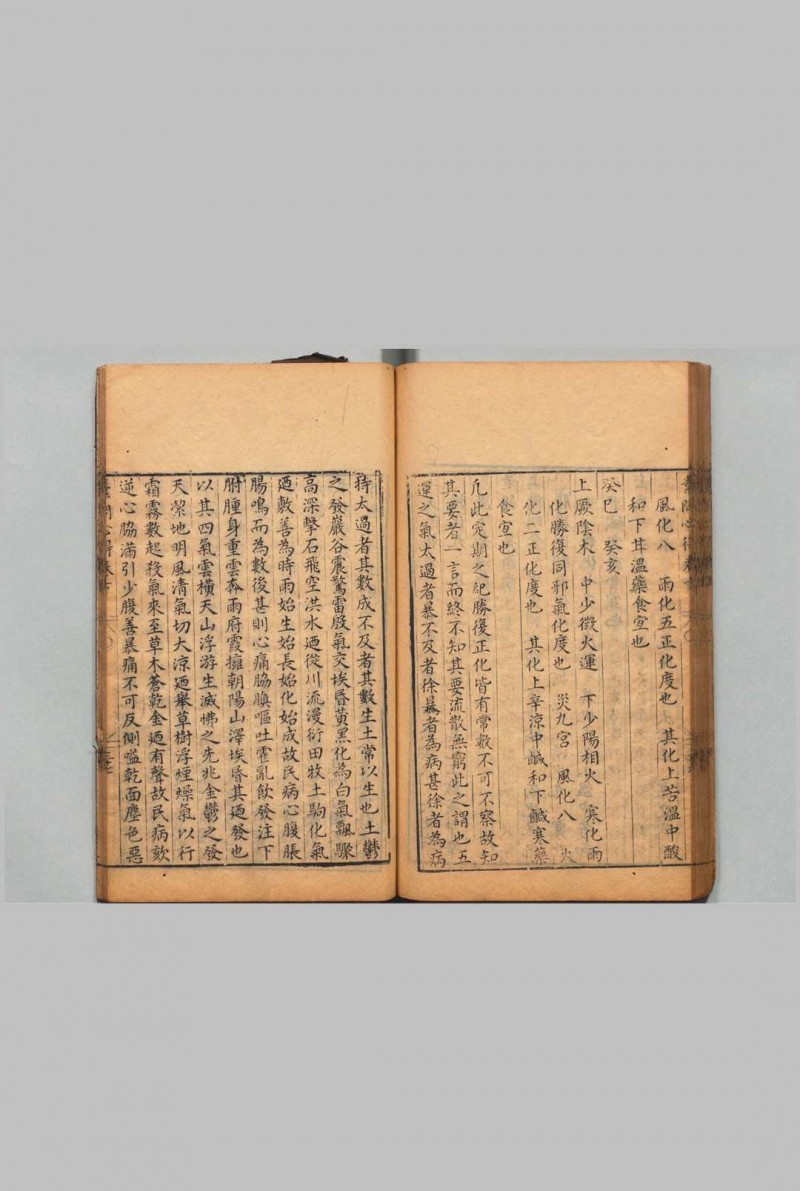 風化八　雨化五正化度也　其化上苦溫中酸
和下甘溫藥食宜也
癸巳　癸亥
上厥陰木　中少徵火運　下少陽相火　寒化雨
化勝復同邪氣化度也　災九宮　風化八　火
化二正化度也　其化上辛涼中鹹和下鹹寒藥
食宜也
凡此定期之紀勝復正化皆有常數不可不察故知
其要者一言而終不知其要流散無窮此之謂也五
運之氣太過者暴不及者徐暴者為病甚徐者為病
持太過者其數成不及者其數生土常以生也土鬱
之發巖谷震驚雷殷氣交埃昏黃黑化為白氣飄驟
高深擊石飛空洪水迺從川流漫衍田牧土駒化氣
迺敷善為時雨始生始長始化始成故民病心腹脹
腸鳴而為數後甚則心痛脇䐜嘔吐霍亂飲發注下
胕腫身重雲奔雨府霞擁朝陽山澤埃昏其迺發也
以其四氣雲橫天山浮游生滅怫之先兆金鬱之發
天潔地明風清氣切大涼迺舉草樹浮煙燥氣以行
霜霧數起殺氣來至草木蒼乾金迺有聲故民病欬
逆心脇滿引少腹善暴痛不可反側嗌乾面塵色惡